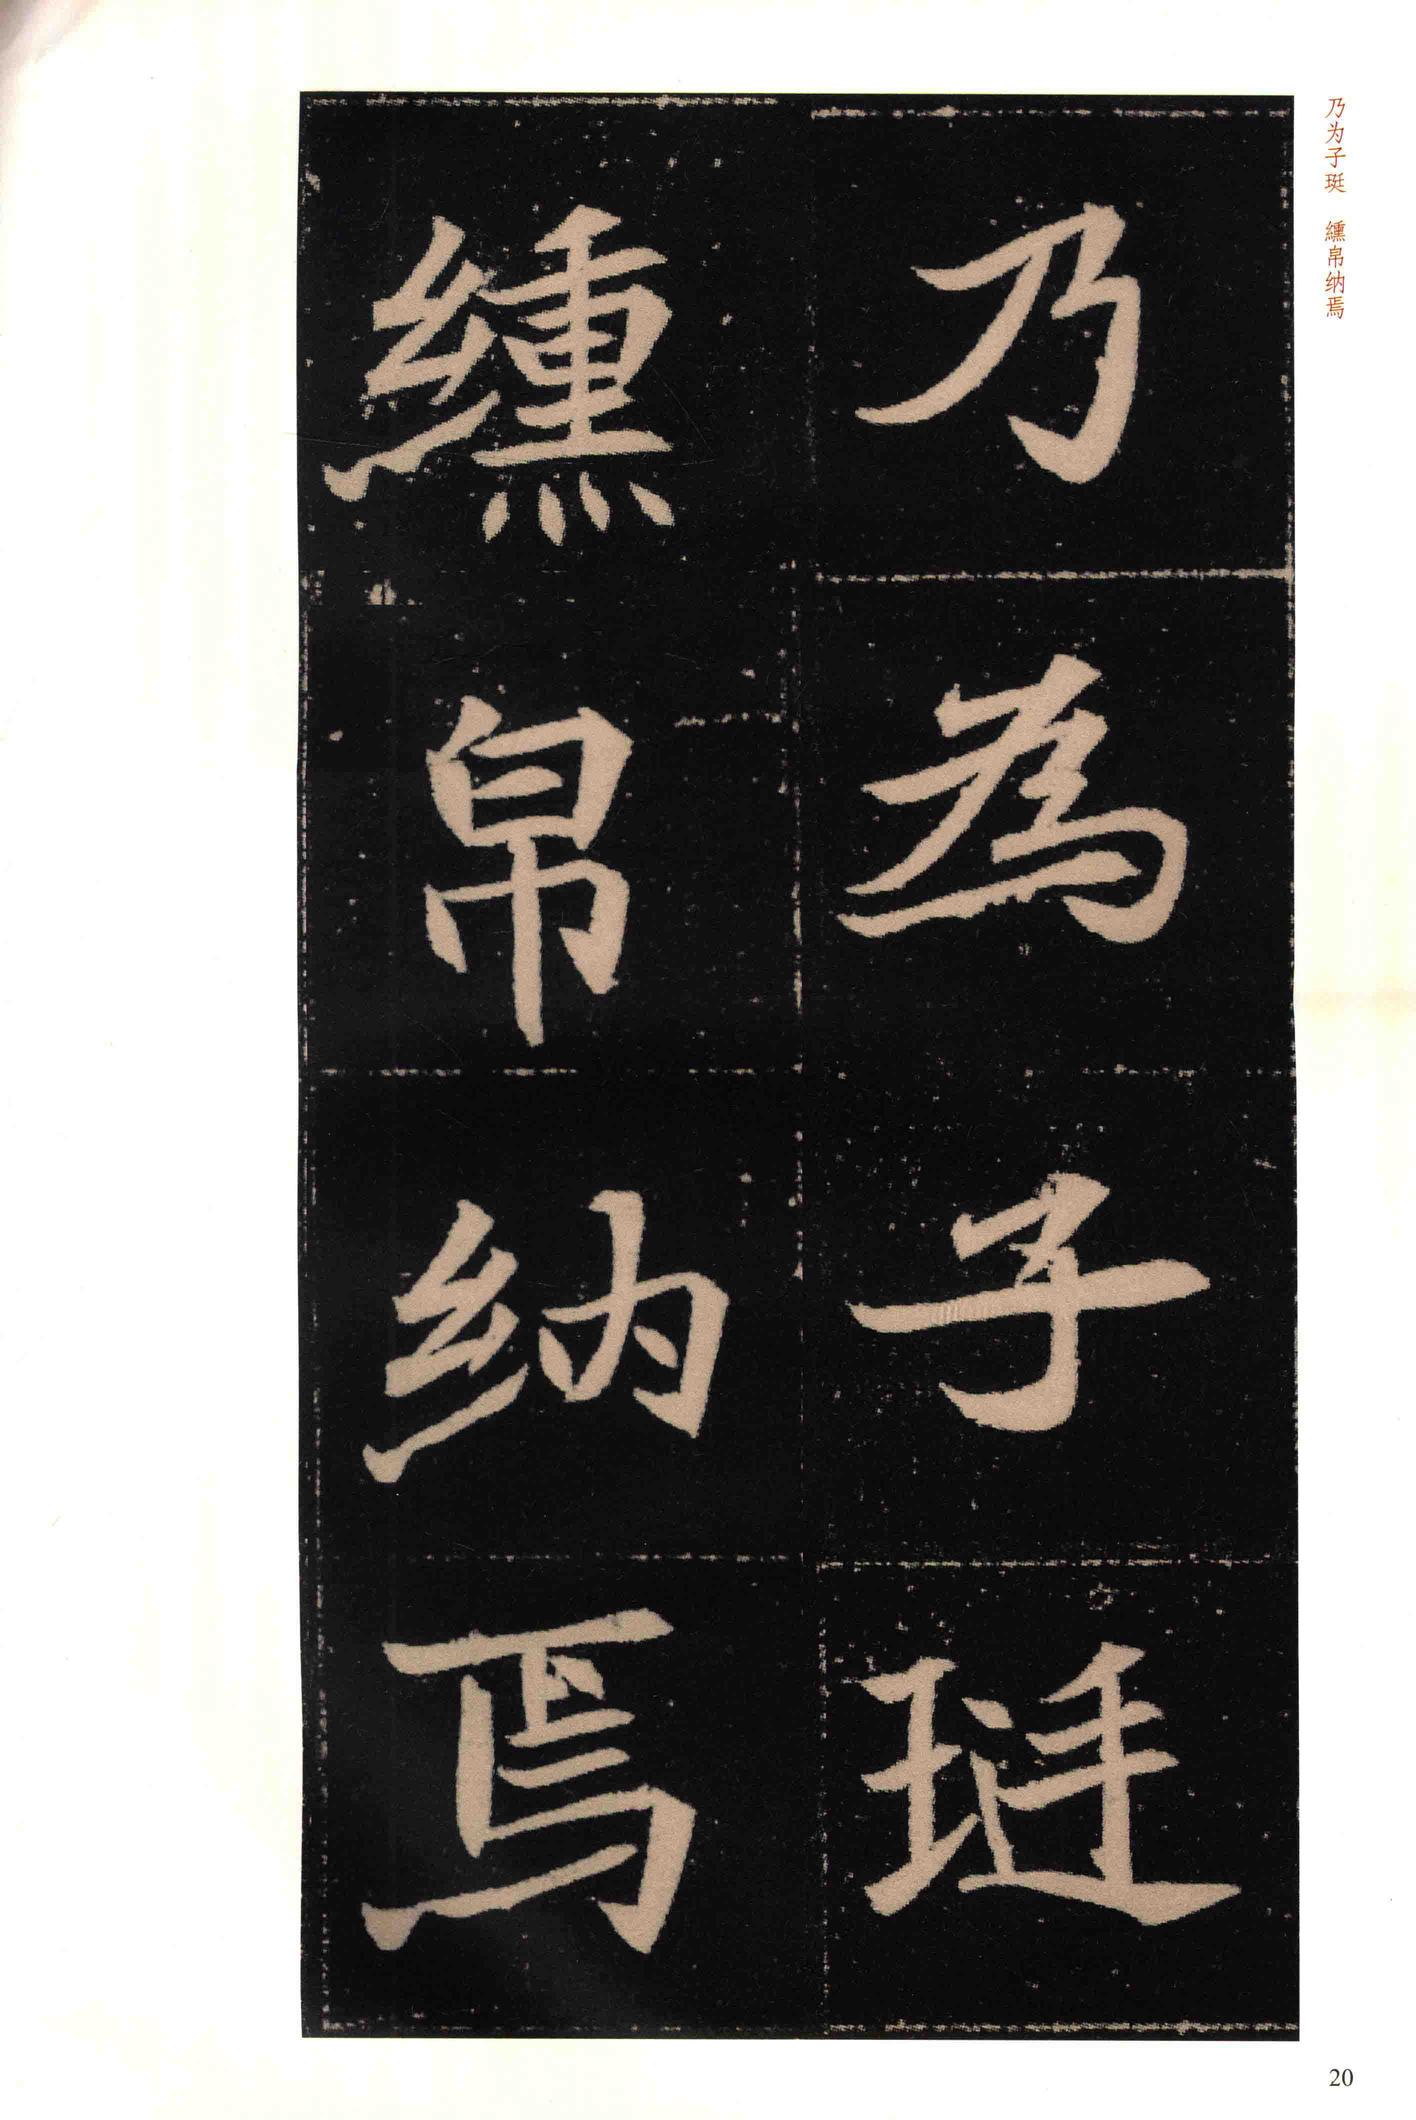 乃为子珽　纁帛纳焉
乃為子珽
纁帛納焉
20